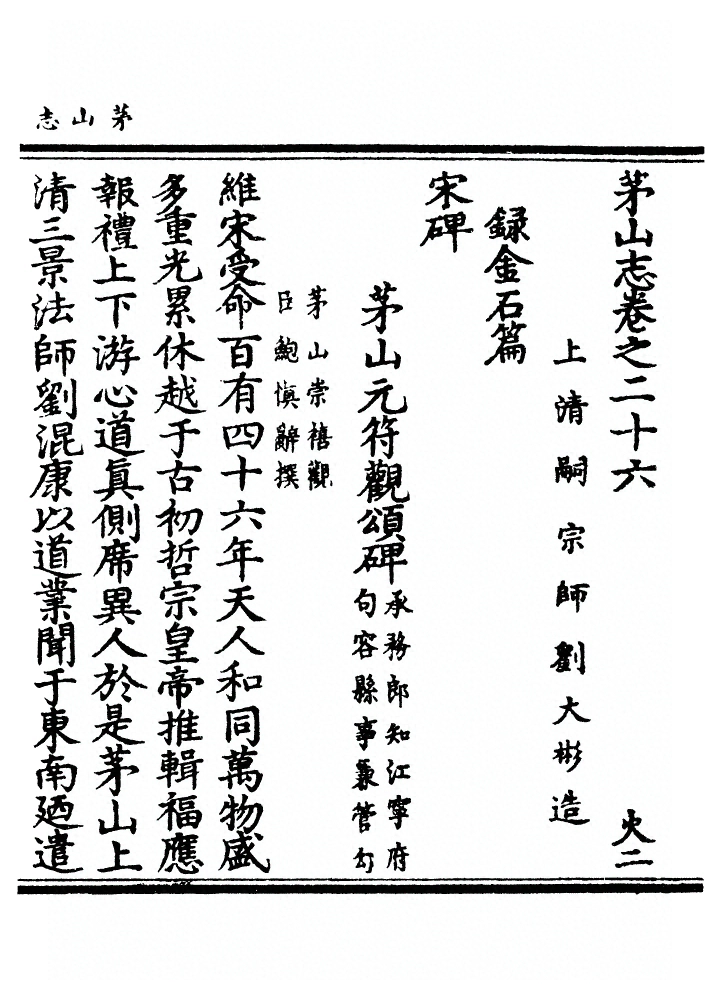 茅山志
茅山志卷之二十六 火二
上清嗣宗師劉大彬造
録金石篇
宋碑
茅山元符觀頌碑
承務郎知江寧府
句容縣事兼管勾
茅山崇禧觀
臣鮑慎辭撰
維宋受命百有四十六年天人和同萬物盛
多重光累休越于古初哲宗皇帝推輯福應
報禮上下游心道真側席異人於是茅山上
清三景法師劉混康以道業聞于東南廼遣